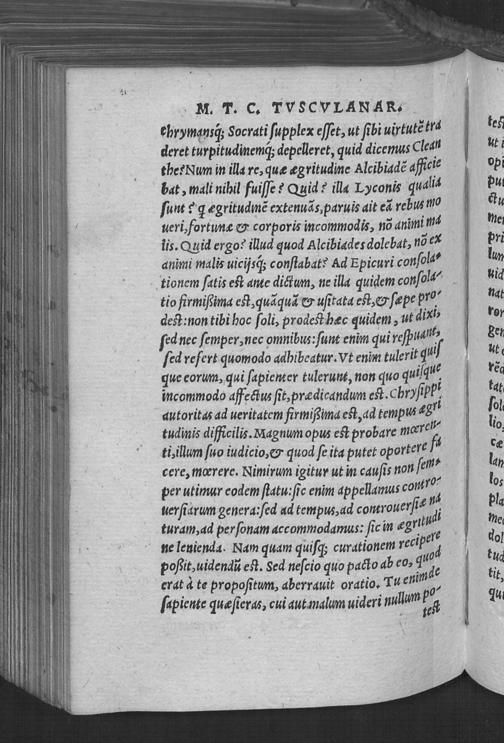 M. T. C. TVSCVLANAR.
chrymansq́; Socrati supplex esset, ut sibi uirtutẽ tra
deret turpitudinemq́; depelleret, quid dicemus Clean
the? Num in illa re, quæ ægritudine Alcibiadẽ afficie
bat, mali nihil fuisse? Quid? illa Lyconis qualia
sunt? q ægritudinẽ extenuãs, paruis ait eã rebus mo
ueri, fortunæ & corporis incommodis, nõ animi ma
lis. Quid ergo? illud quod Alcibiades dolebat, nõ ex
animi malis uicijsq́; constabat? Ad Epicuri consola-
tionem satis est ante dictum, ne illa quidem consola-
tio firmißima est, quãquã & usitata est, & sæpe pro-
dest: non tibi hoc soli, prodest hæc quidem, ut dixi,
sed nec semper, nec omnibus: sunt enim qui respuant,
sed refert quomodo adhibeatur. Vt enim tulerit quis
que eorum, qui sapienter tulerunt, non quo quisque
incommodo affectus sit, prædicandum est. Chrysippi
autoritas ad ueritatem firmißima est, ad tempus ægri
tudinis difficilis. Magnum opus est probare mœren-
ti, illum suo iudicio, & quod se ita putet oportere fa
cere, mœrere. Nimirum igitur ut in causis non sem-
per utimur eodem statu: sic enim appellamus contro-
uersiarum genera: sed ad tempus, ad controuersiæ na
turam, ad personam accommodamus: sic in ægritudi
ne lenienda. Nam quam quisq; curationem recipere
poßit, uidendũ est. Sed nescio quo pacto ab eo, quod
erat à te propositum, aberrauit oratio. Tu enim de
sapiente quæsieras, cui aut malum uideri nullum po-
test